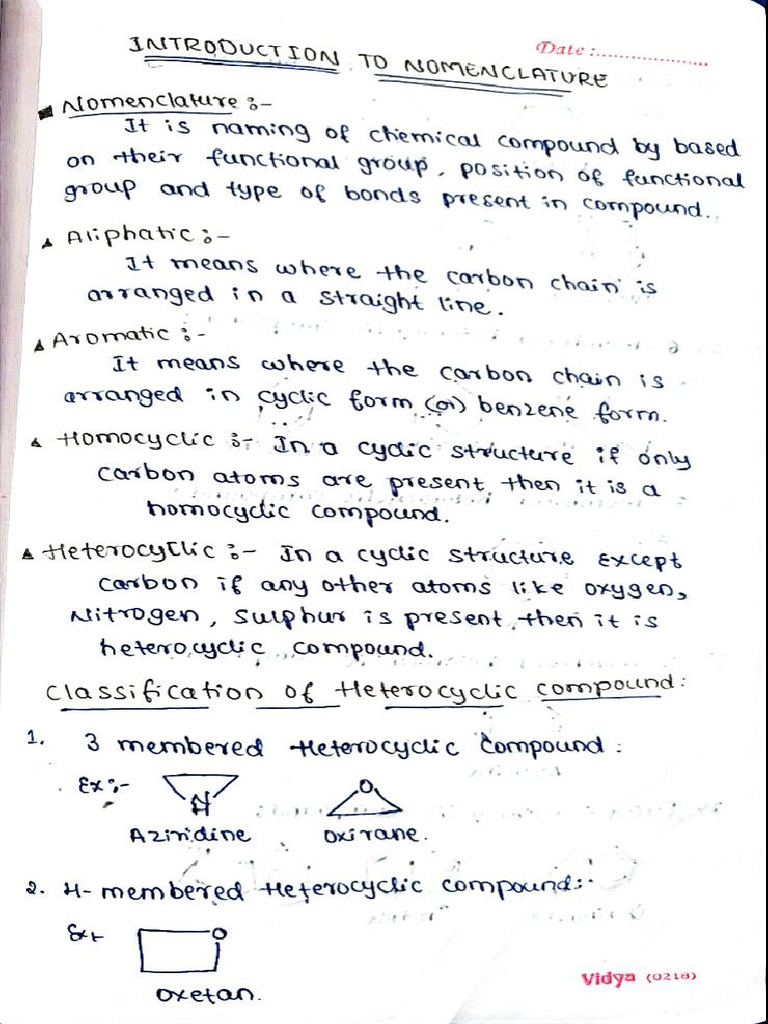 Date:...................
INTRODUCTION TO NOMENCLATURE
Nomenclature :-
It is naming of chemical compound by based
on their functional group, position of functional
group and type of bonds present in compound.
Aliphatic :-
It means where the carbon chain is
arranged in a straight line.
Aromatic :-
It means where the carbon chain is
arranged in cyclic form (or) benzene form.
Homocyclic :- In a cyclic structure if only
carbon atoms are present then it is a
homocyclic compound.
Heterocyclic :- In a cyclic structure except
carbon if any other atoms like oxygen,
Nitrogen, sulphur is present then it is
heterocyclic compound.
Classification of Heterocyclic compound:
1. 3 membered Heterocyclic compound:
Ex:-
N
H
O
Aziridine oxirane.
2. 4-membered Heterocyclic compound:-
Ex:-
O
oxetan.
Vidya (0218)